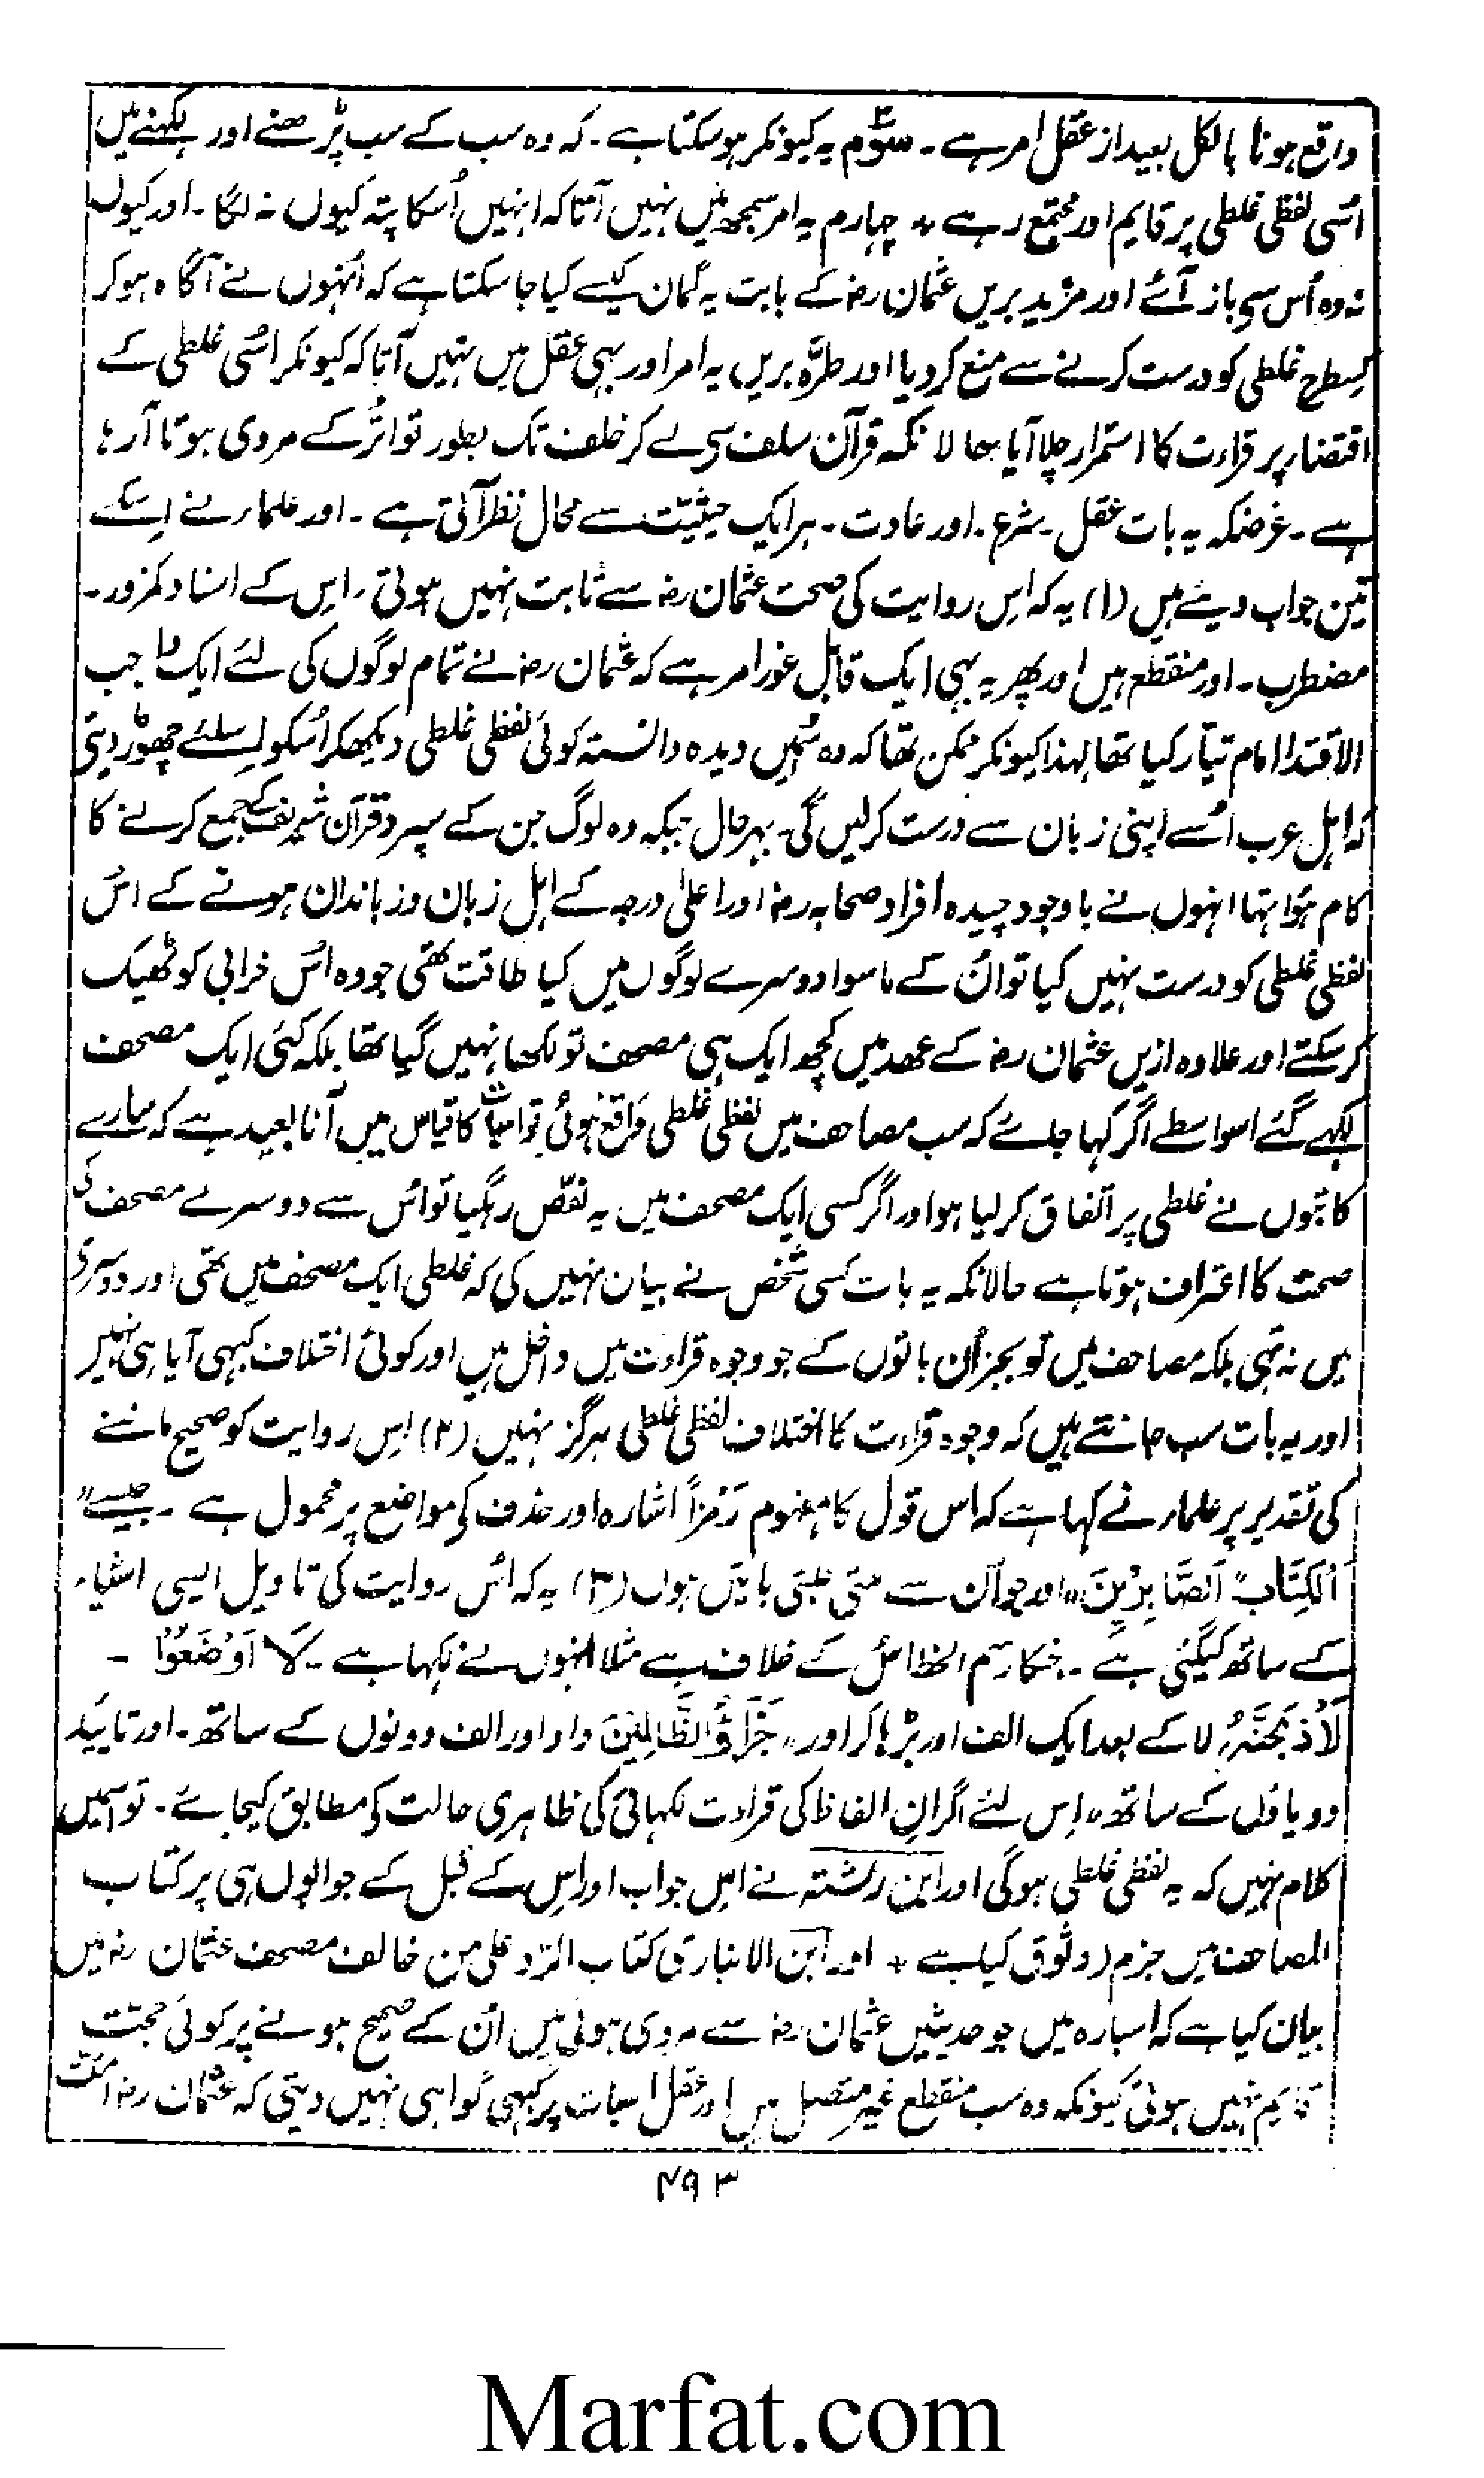 واقع ہونا بالکل بعید از عقل امر ہے ۔ سوّم یہ کیونکر ہو سکتا ہے ۔ کہ وہ سب کے سب پڑھنے اور لکہنے میں
اسُی لفظی غلطی پر قایم اور مجتمع رہے ٭ چہارم یہ امر سمجھ میں نہیں آتا کہ انہیں اُسکا پتہ کیوں نہ لگا ۔ اور کیوں
نہ وہ اُس سی باز آئے اور مزید بریں عثمان رضہ کے بابت یہ گمان کیسے کیا جا سکتا ہے کہ اُنہوں نے آگاہ ہو کر
کسطرح غلطی کو درست کرنے سے منع کر دیا اور طرّہ بریں یہ امر اور بہی عقل میں نہیں آتا کہ کیونکر اسُی غلطی کے
اقتضار پر قراءت کا استمرار چلا آیا حالانکہ قرآن سلف سی لے کر خلف تک بطور تواتُر کے مروی ہوتا آرہا
ہے ۔ غرضکہ یہ بات عقل ۔ شرع ۔ اور عادت ۔ ہر ایک حیثیّت سے محال نظر آتی ہے ۔ اور علمار نے اسکے
تین جواب دیئے ہیں (۱) یہ کہ اِس روایت کی صحت عثمان رضہ سے ثابت نہیں ہوتی ۔ اِس کے اسناد کمزور ۔
مضطرب ۔ اور منقطع ہیں اور پھر یہ بہی ایک قابل غور امر ہے کہ عثمان رضہ نے تمام لوگوں کی لئے ایک واجب
الاقتدا امام تیّار کیا تھا لہذا کیونکر ممکن تھا کہ وہ اسُمیں دیدہ دانستہ کوئی لفظی غلطی دیکھکر اُسکو اسلئے چھوڑ دیتی
کہ اہل عرب اسُے اپنی زبان سے درست کر لیں گی ۔ بہر حال جبکہ وہ لوگ جن کے سپرد قرآن شریف کے جمع کرنے کا
کام ہوٗا تہا انہوں نے باوجود چیدہ افراد صحابہ رضہ اور اعلیٰ درجہ کے اہل زبان و زباندان ہونے کے اسُ
لفظی غلطی کو درست نہیں کیا تو اُن کے ماسوا دوسرے لوگوں میں کیا طاقت تھی جو وہ اسُ خرابی کو ٹھیک
کر سکتے اور علاوہ ازیں عثمان رضہ کے عہد میں کچھ ایک ہی مصحف تو لکھا نہیں گیا تھا بلکہ کئی ایک مصحف
لکہے گئے اسواسطے اگر کہا جائے کہ سب مصاحف میں لفظی غلطی واقع ہوئی تو اسبات کا قیاس میں آنا بعید ہے کہ سارے
کاتبوں نے غلطی پر اتفاق کر لیا ہو اور اگر کسی ایک مصحف میں یہ نقص رہگیا تو اسُ سے دوسرے مصحف کی
صحت کا اعتراف ہوتا ہے حالانکہ یہ بات کسی شخص نے بیان نہیں کی کہ غلطی ایک مصحف میں تھی اور دوسری
میں نہ تہی بلکہ مصاحف میں تو بجز اُن باتوں کے جو وجوہ قراءت میں داخل ہیں اور کوئی اختلاف کبہی آیا ہی نہیں
اور یہ بات سب جانتے ہیں کہ وجوہ قراءت کا اختلاف لفظی غلطی ہرگز نہیں (۲) اِس روایت کو صحیح ماننے
کی تقدیر پر علمار نے کہا ہے کہ اس قول کا مفہوم رَمزاً اشارہ اور حذف کی مواضع پر محمول ہے ۔ جیسے "
اَلکِتَابُ" اَلصَّابِرِیْنَ " اور جو اُن سے ملتی جلتی باتیں ہوں (۳) یہ کہ اسُ روایت کی تاویل ایسی اشیاء
کے ساتھ کیگئی ہے ۔ جنکا رسم الخط اسُ کے خلاف ہے مثلا انہوں نے لکہا ہے ۔ لَا اَوْضَعُوْا ۔
لَاَ۠ذبَحَنَّہٗ لا کے بعد ایک الف اور بڑہا کر اور " جَزَاؤُا الظَّالِمِیْنَ واو اور الف دونوں کے ساتھ ۔ اور تاییَد
دو یاؤں کے ساتھ ٭ اِس لئے اگر ان الفاظ کی قراءت لکہائی کی ظاہری حالت کو مطابق کیجائے ۔ تو اسمیں
کلام نہیں کہ یہ لفظی غلطی ہوگی اور ابن رشتہ نے اس جواب اور اس کے قبل کے جوابوں ہی پر کتاب
المصاحف میں جزم (وثوق کیا ہے ٭ اور ابن الانباری کتاب الرّد علی من خالف مصحف عثمان رضہ میں
بیان کیا ہے کہ اسبارہ میں جو حدیثیں عثمان رضہ سے مروی ہوئی ہیں اُن کے صحیح ہونے پر کوئی حجّت
قایم نہیں ہوئی کیونکہ وہ سب منقطع غیر متصل ہیں اور عقل اسبات پر کبہی گواہی نہیں دیتی کہ عثمان رضہ امت
۴۹۳
Marfat.com